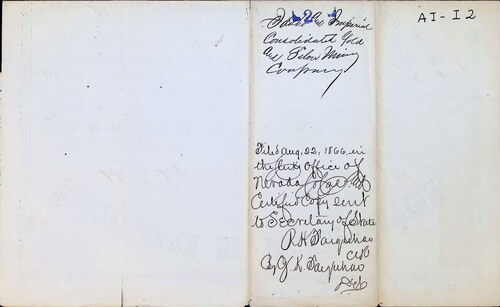 AI-I2
2
Idaho and Imperial
Consolidated Gold
and Silver Mining
Company
Filed Aug. 22, 1866 in
the Clerk's Office of
Nevada Co Cal and
Certified Copy sent
to Secretary of State
R H Farquhar
Clk
By J. K. Farquhar